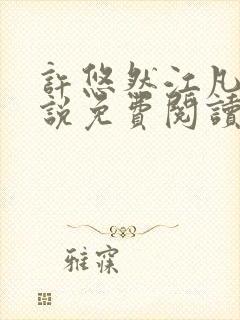 許悠然江凡
說免費閱讀
雅寐